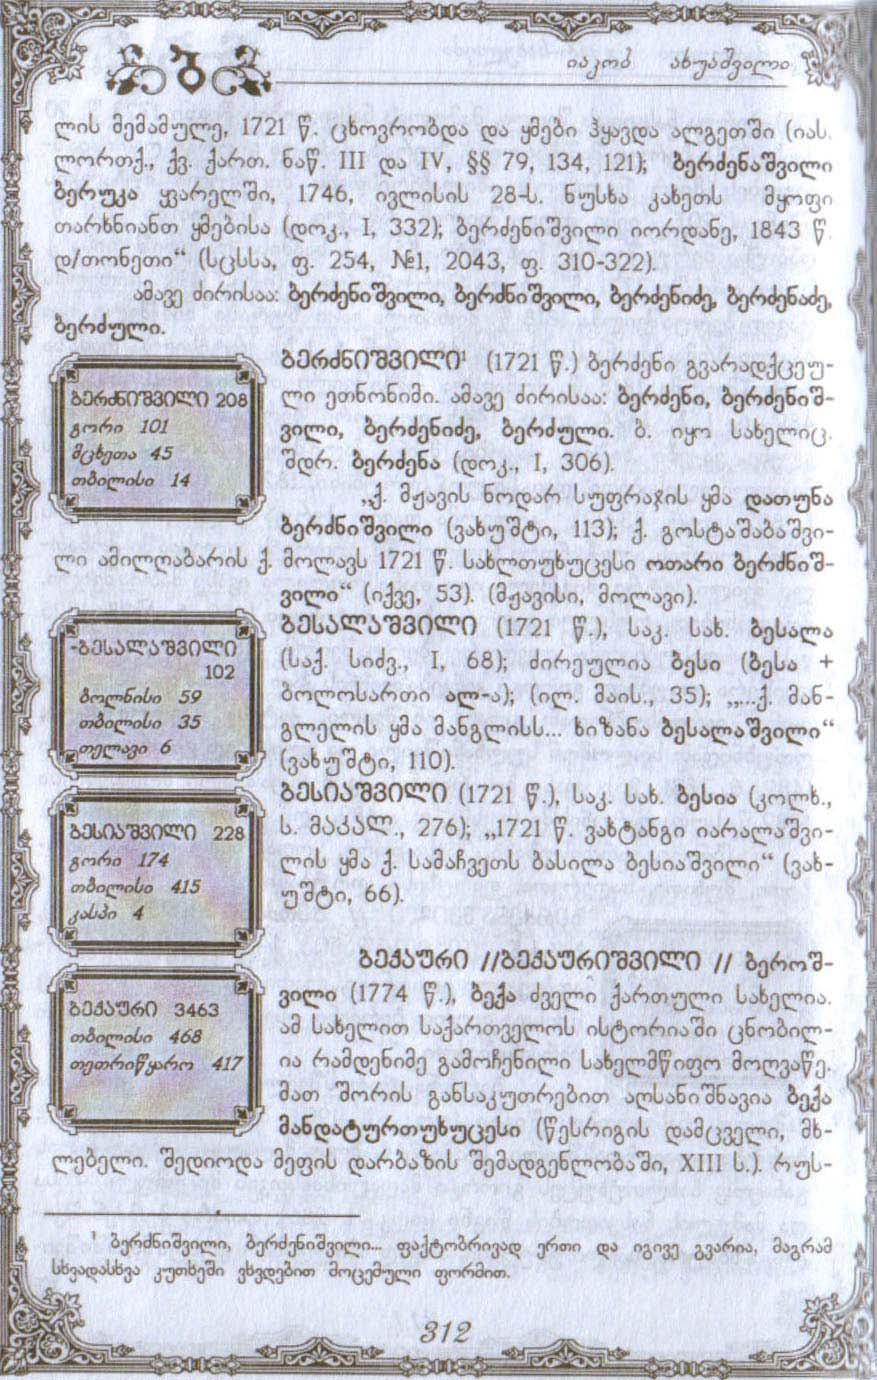 იაკობ ახუაშვილი
ლის მემამულე, 1721 წ. ცხოვრობდა და ყმები ჰყავდა ალგეთში (იას.
ლორთქ., ქვ. ქართ. ნაწ. III და IV, §§ 79, 134, 121); ბერძენაშვილი
ბერუკა ყვარელში, 1746, ივლისის 28-ს. ნუსხა კახეთს მყოფი
თარხნიანთ ყმებისა (დოკ., I, 332); ბერძენიშვილი იორდანე, 1843 წ.
დ/თონეთი“ (სცსსა, ფ. 254, №1, 2043, ფ. 310-322).
ამავე ძირისაა: ბერძენიშვილი, ბერძნიშვილი, ბერძენიძე, ბერძენაძე,
ბერძული.
ბერძნიშვილი 208
გორი 101
მცხეთა 45
თბილისი 14
ბერძნიშვილი¹ (1721 წ.) ბერძენი გვარადქცეუ-
ლი ეთნონიმი. ამავე ძირისაა: ბერძენი, ბერძენიშ-
ვილი, ბერძენიძე, ბერძული. ბ. იყო სახელიც.
შდრ. ბერძენა (დოკ., I, 306).
„ქ. მჟავის ნოდარ სუფრაჯის ყმა დათუნა
ბერძნიშვილი (ვახუშტი, 113); ქ. გოსტაშაბაშვი-
ლი ამილღაბარის ქ. მოლავს 1721 წ. სახლთუხუცესი ოთარი ბერძნიშ-
ვილი“ (იქვე, 53). (მჟავისი, მოლავი).
-ბესალაშვილი
102
ბოლნისი 59
თბილისი 35
თელავი 6
ბესალაშვილი (1721 წ.), საკ. სახ. ბესალა
(საქ. სიძვ., I, 68); ძირეულია ბესი (ბესა +
ბოლოსართი ალ-ა); (ილ. მაის., 35); „...ქ. მან-
გლელის ყმა მანგლისს... ხიზანა ბესალაშვილი“
(ვახუშტი, 110).
ბესიაშვილი 228
გორი 174
თბილისი 415
კასპი 4
ბესიაშვილი (1721 წ.), საკ. სახ. ბესია (კოლხ.,
ს. მაკალ., 276); „1721 წ. ვახტანგი იარალაშვი-
ლის ყმა ქ. სამაჩვეთს ბასილა ბესიაშვილი“ (ვახ-
უშტი, 66).
ბექაური 3463
თბილისი 468
თეთრიწყარო 417
ბექაური //ბექაურიშვილი // ბეროშ-
ვილი (1774 წ.), ბექა ძველი ქართული სახელია.
ამ სახელით საქართველოს ისტორიაში ცნობილ-
ია რამდენიმე გამოჩენილი სახელმწიფო მოღვაწე.
მათ შორის განსაკუთრებით აღსანიშნავია ბექა
მანდატურთუხუცესი (წესრიგის დამცველი, მხ-
ლებელი. შედიოდა მეფის დარბაზის შემადგენლობაში, XIII ს.). რუს-
¹ ბერძნიშვილი, ბერძენიშვილი... ფაქტობრივად ერთი და იგივე გვარია, მაგრამ
სხვადასხვა კუთხეში ვხვდებით მოცემული ფორმით.
312